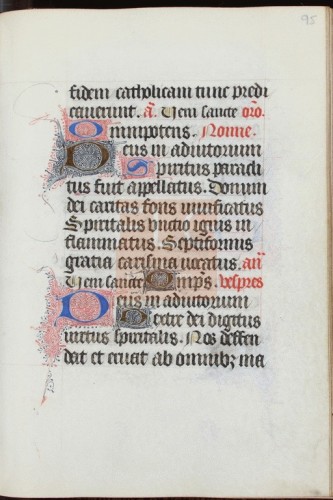 95
fidem catholicam tunc predi
caverunt. a. Veni sancte oro.
Omnipotens. Nonne.
Deus in adiutorium
Spiritus paracli
tus fuit appellatus. Donum
dei caritas fons vivificatus
Spiritalis unctio ignis in
flammatus. Septiformis
gratia carisma vocatus. an
Veni sancte Omps. vespres
Deus in adiutorium
Dextre dei digitus
virtus spiritalis. Nos deffen
dat et eruat ab omnibz ma